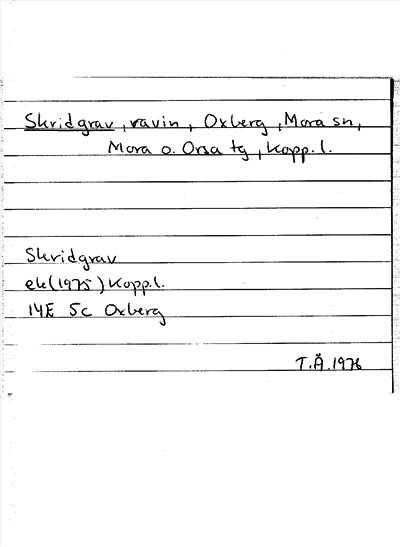 Skridgrav, ravin, Oxberg, Mora sn,
Mora o. Orsa tg, Kopp.l.
Skridgrav
ek(1975) Kopp.l.
14E 5c Oxberg
T.Å.1976